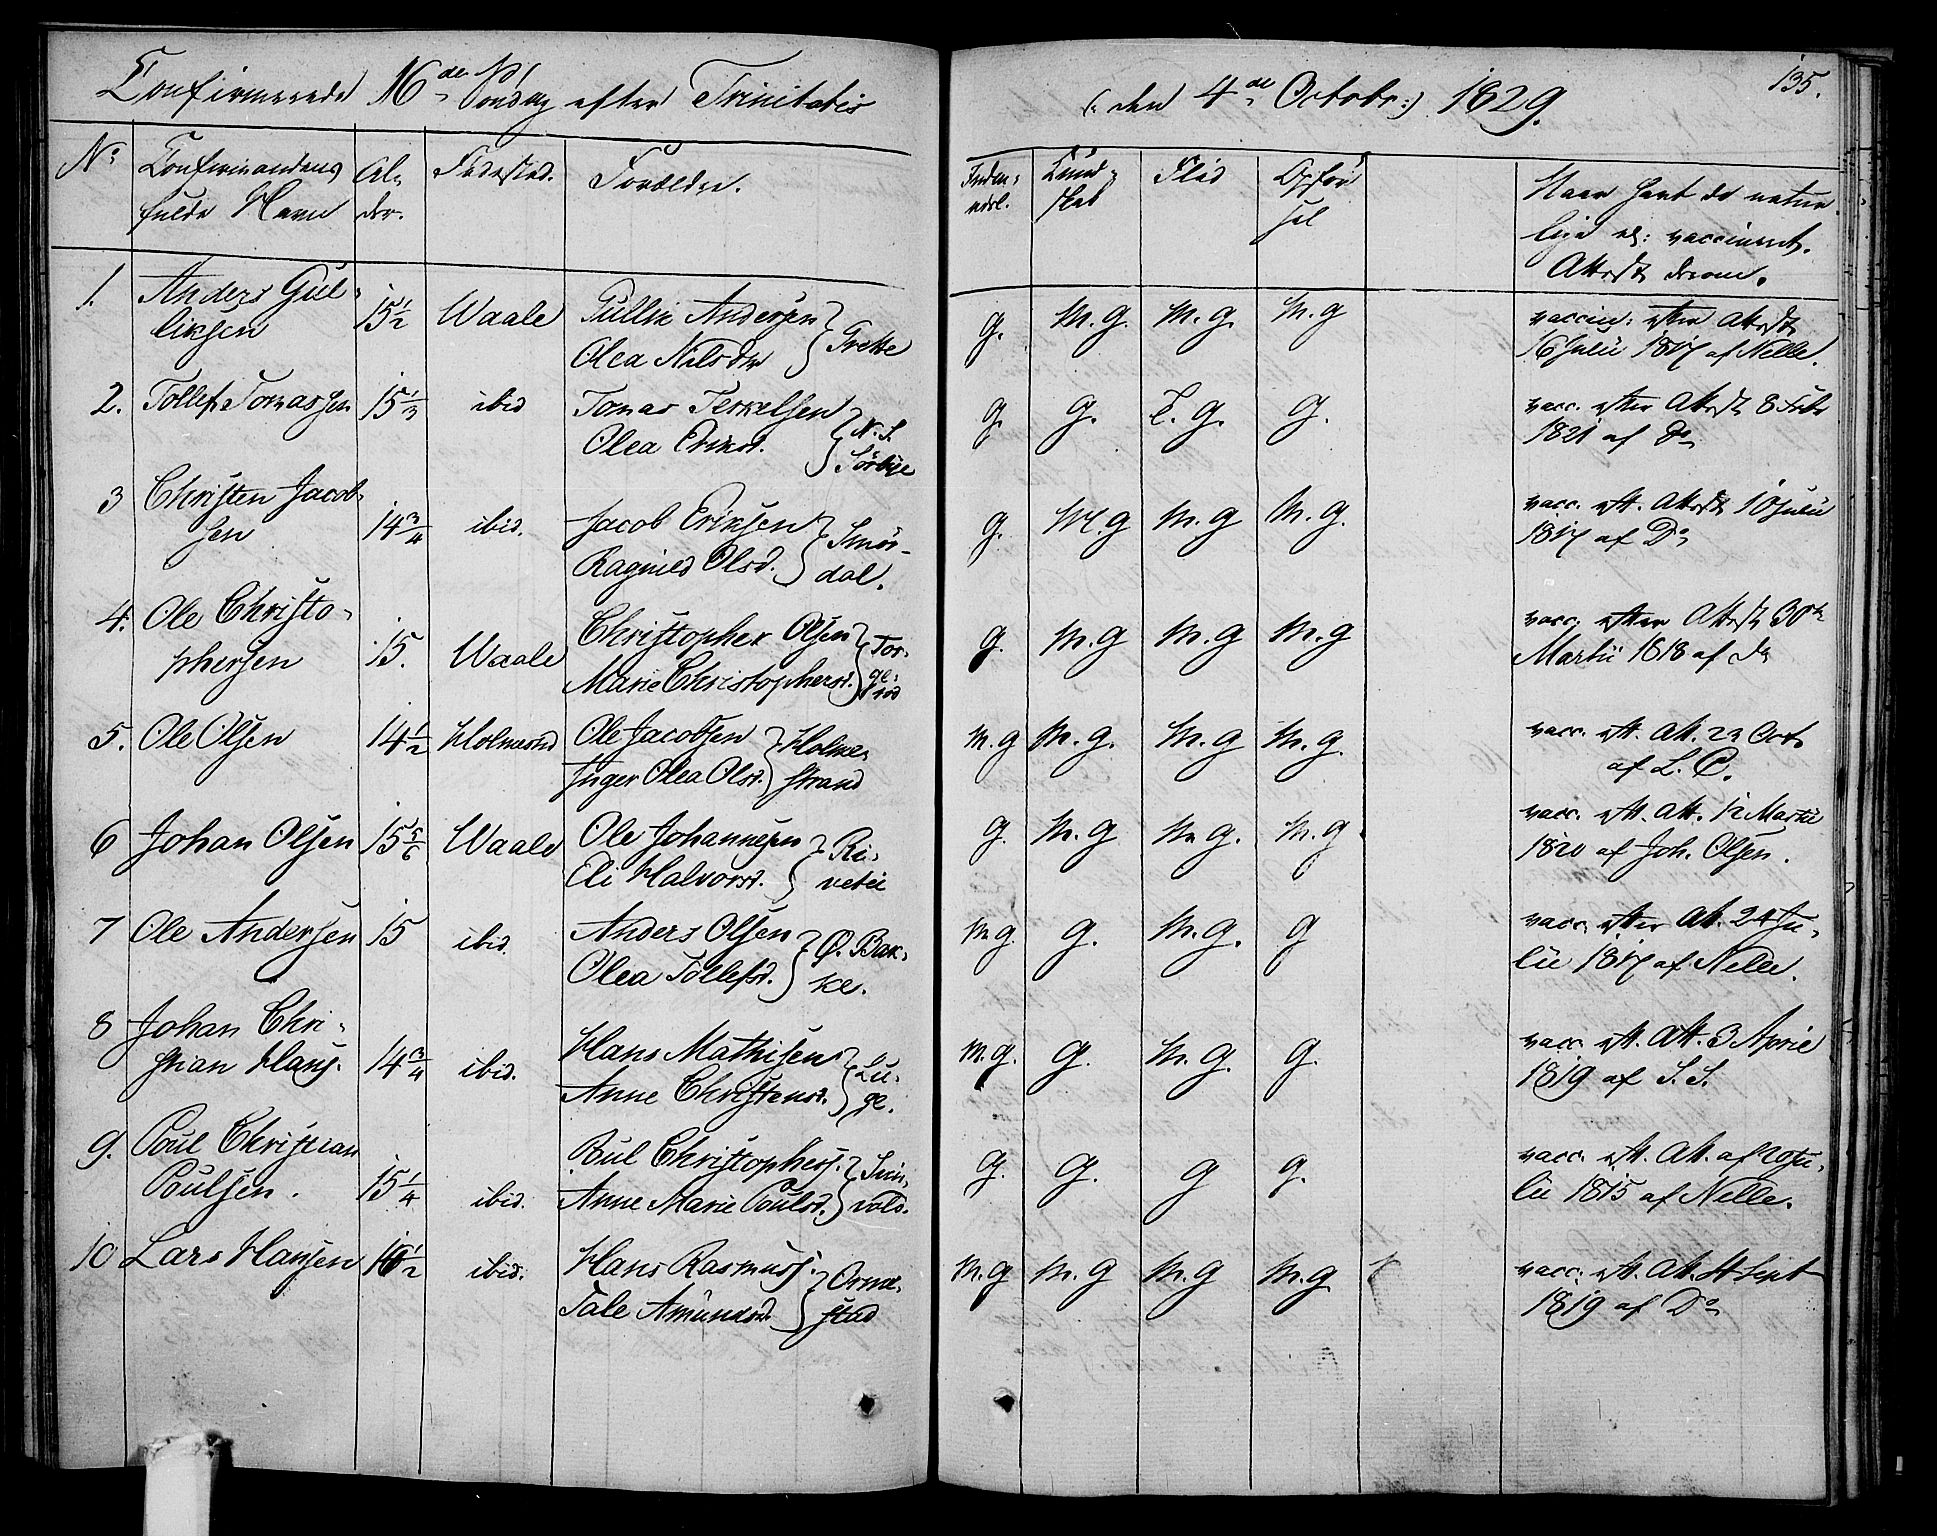 Confirmerede 16de Søndag efter Trinitatis (: den 4de Octobr:) 1829.
135.
No Confirmandens fulde Navn Al- der. Fødested. Forældre.
Inden- adsl. Kund- skab Flid Opfør- sel Naar havt de natur- lige el: vaccineret. Attest derom.
1. Anders Gul- liksen 15 1/2 Waale Gullik Andersen Olea Nilsdr } Grette
g. M.g. M.g. M.g vaccin: efter Attest 16 Julii 1817 af Nelle.
2. Tollef Tomassen 15 1/3 ibid Tomas Terkelsen Olea Eriksd. } N. S. Sørbye
g. g. T.g. g. vacc. efter Attest 8 Febr 1821 af Do
3 Christen Jacob- sen 14 3/4 ibid. Jacob Eriksen Ragnild Olsd. } Smør- dal.
g. M.g M.g M.g. vacc. eft. Attest 10 Julii 1817 af Do
4. Ole Christo- phersen 15. Waale Christopher Olsen Marie Christophersd. } Tor- ge- rød
g. M.g M.g M.g vacc. efter Attest 30te Martii 1818 af do
5. Ole Olsen 14 1/2 Holmestrd Ole Jacobsen Inger Olea Olsd. } Holme- strand
M.g M.g. M.g M.g. vacc. eft. Att. 23 Oct. af L. C.
6 Johan Olsen 15 5/6 Waale Ole Johannesen Eli Halvorsd. } Re- vetii
g. M.g M.g. M.g. vacc. eft. Att. 12 Martii 1820 af Joh. Olsen.
7 Ole Andersen 15 ibid. Anders Olsen Olea Tollefsd. } Ø. Bak- ke.
M.g. g. M.g. g vacc. efter Att. 24 Ju- lii 1817 af Nelle.
8 Johan Chri- stian Hans. 14 3/4 ibid. Hans Mathisen Anne Christensd. } Lu- ge.
M.g. g. M.g. g. vacc. eft. Att. 3 April 1819 af S. S.
9. Poul Christian Poulsen. 15 1/4 ibid. Poul Christophers. Anne Marie Poulsd. } vold.
g. g. g g. vacc. eft. Att. af 20 Ju- lii 1815 af Nelle.
10 Lars Hansen 16 1/2 ibid. Hans Rasmuss. Tale Amundsd. } Orme- stad
M.g M.g M.g M.g. vacc. eft. Att. Sept 1819 af Do